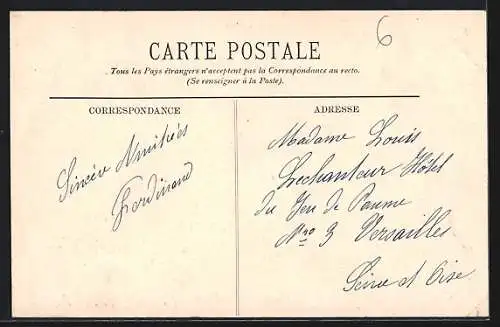 6
CARTE POSTALE
Tous les Pays étrangers n'acceptent pas la Correspondance au recto.
(Se renseigner à la Poste).
CORRESPONDANCE
Sincère Amitiés
Ferdinand
ADRESSE
Madame Louis
Lechanteur Hôtel
du Jeu de Paume
Nro 3 Versailles
Seine et Oise